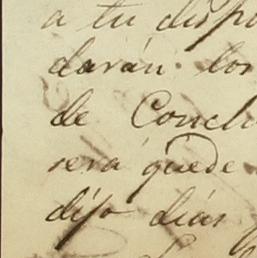 a tu dispo
darán los
de Conclu
será quede
dijo diás